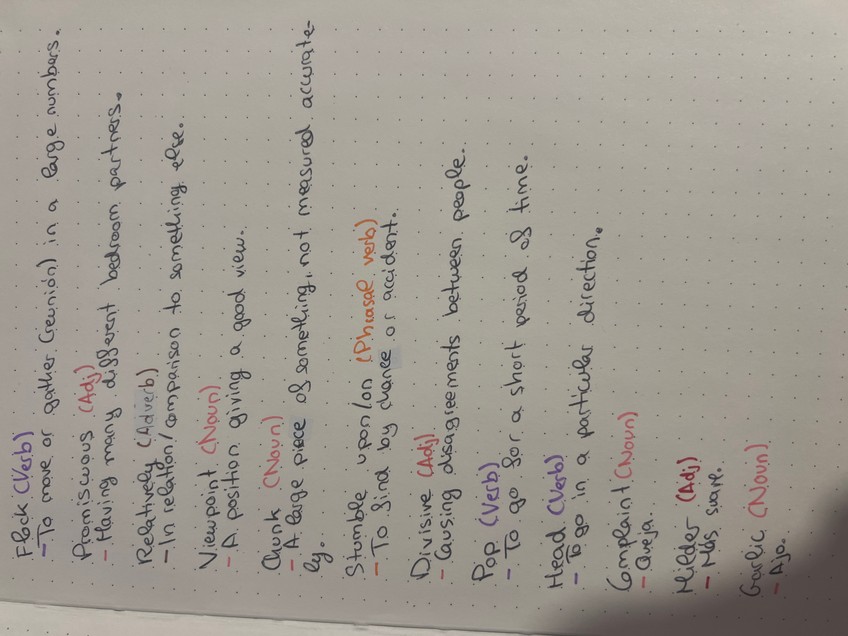 Flock (Verb)
- To move or gather (reunión) in a large numbers.
Promiscuous (Adj)
- Having many different bedroom partners.
Relatively (Adverb)
- In relation/comparison to something else.
Viewpoint (Noun)
- A position giving a good view.
Chunk (Noun)
- A large piece of something, not measured accurate-
ly.
Stumble upon/on (Phrasal verb)
- To find by chance or accident.
Divisive (Adj)
- Causing disagreements between people.
Pop (Verb)
- To go for a short period of time.
Head (Verb)
- To go in a particular direction.
Complaint (Noun)
- Queja.
Milder (Adj)
- Más suave.
Garlic (Noun)
- Ajo.